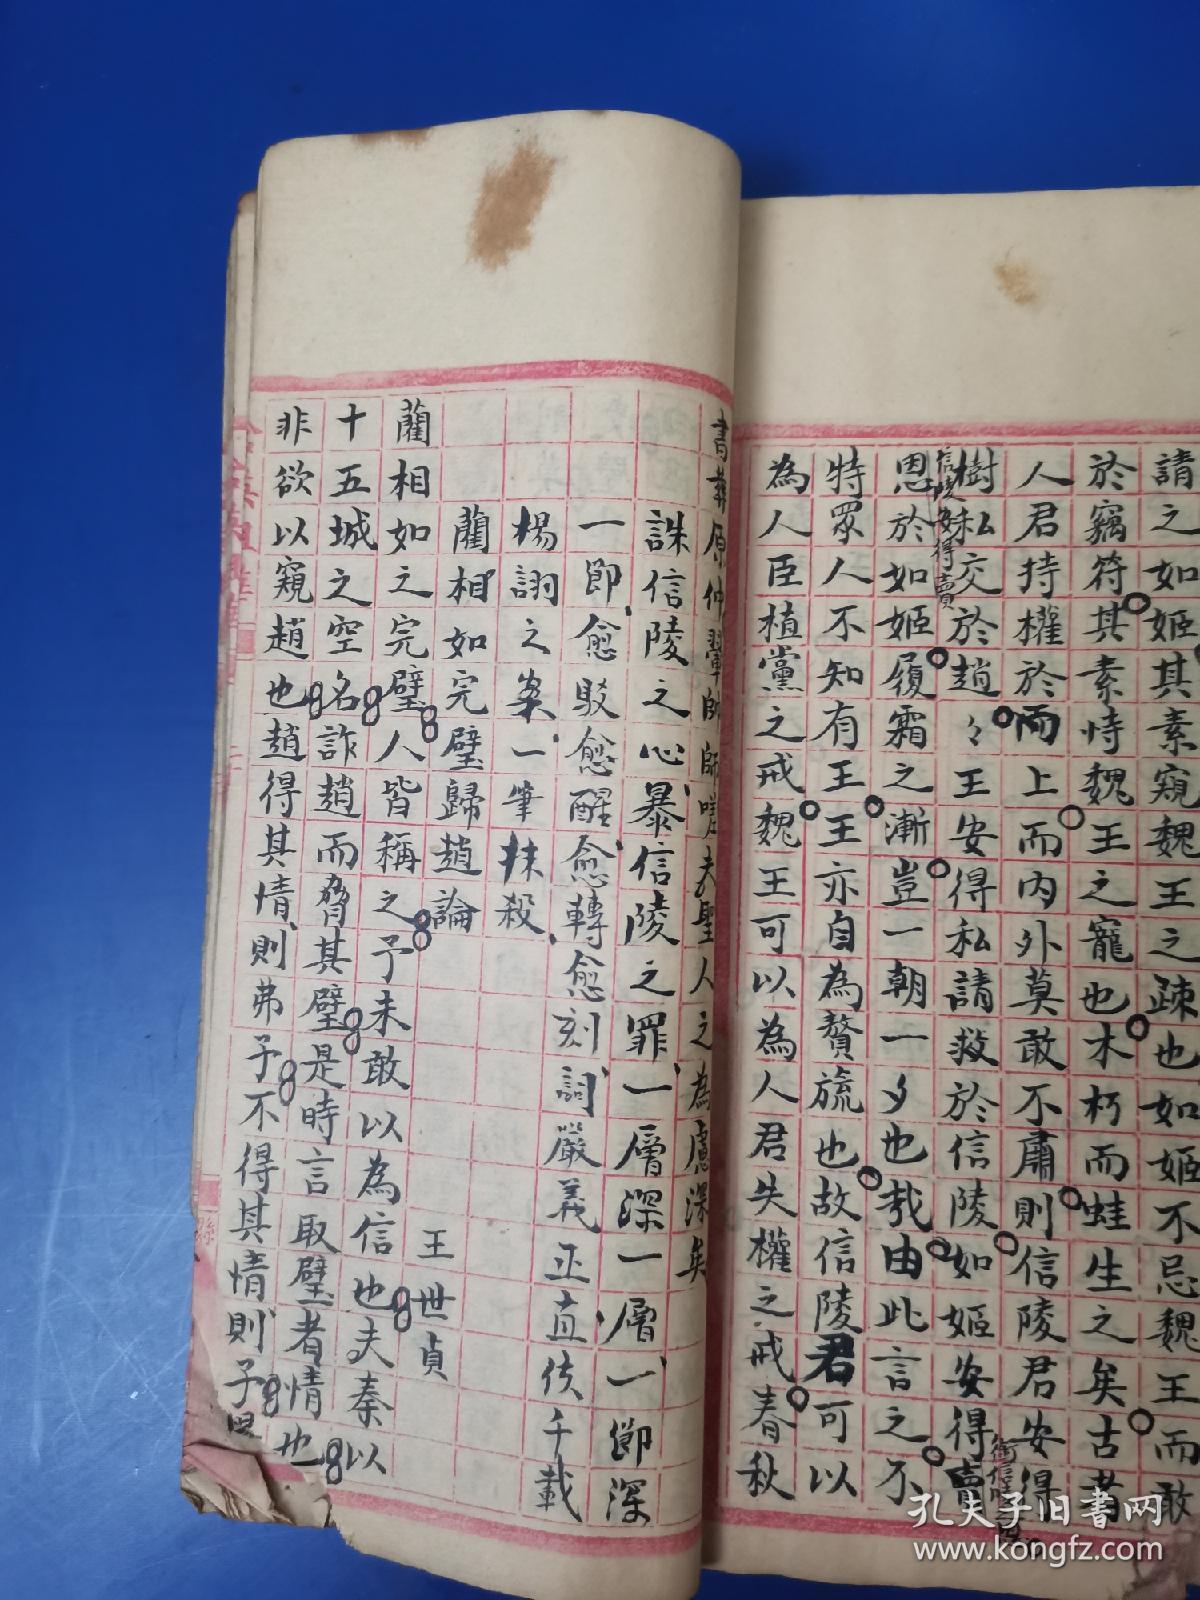 請之如姬其素窺魏王之疎也如姬不忌魏王而敢
於竊符其素恃魏王之寵也木朽而蛀生之矣古者
人君持權於而上而內外莫敢不肅則信陵君安得
樹私交於趙〻王安得私請救於信陵如姬安得賣
信陵安得賣
恩於如姬履霜之漸豈一朝一夕也哉由此言之不
特眾人不知有王王亦自為贅旒也故信陵君可以
為人臣植黨之戒魏王可以為人君失權之戒春秋
書葬原仲翬帥師嗟夫聖人之為慮深矣
誅信陵之心暴信陵之罪一層深一層一節深
一節愈駁愈醒愈轉愈刻詞嚴義正直使千載
揚詡之案一筆抹殺
藺相如完璧歸趙論
王世貞
藺相如之完璧人皆稱之予未敢以為信也夫秦以
十五城之空名詐趙而脅其璧是時言取璧者情也
非欲以窺趙也趙得其情則弗予不得其情則予
孔夫子旧書网
www.kongfz.com